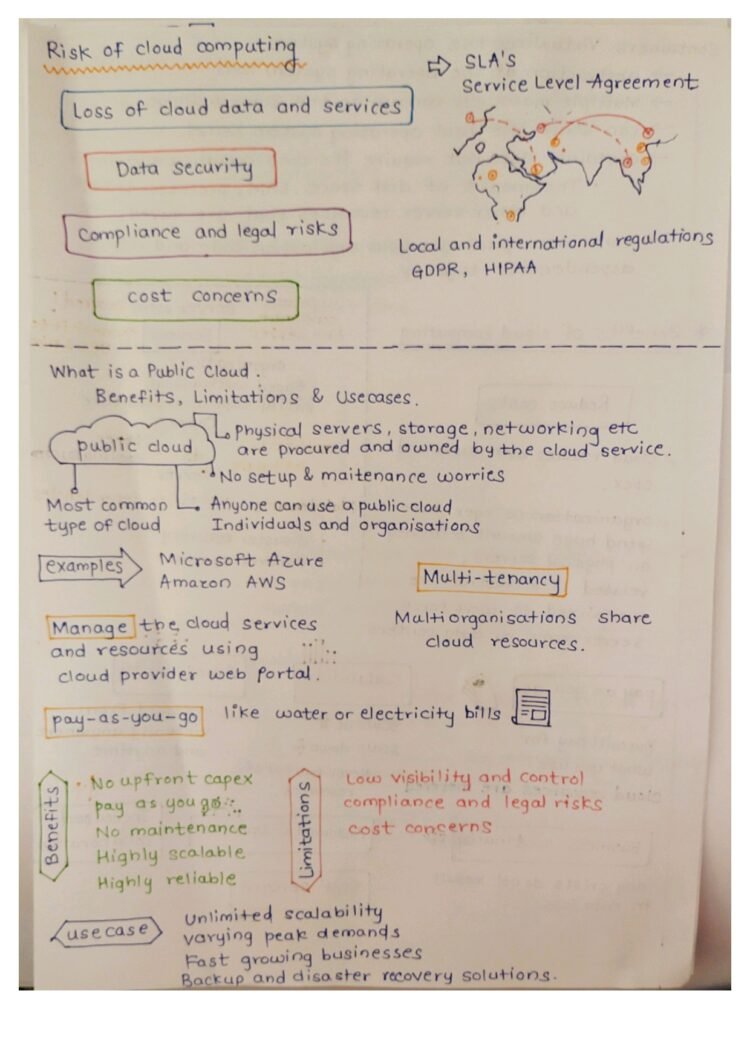 Risk of cloud computing
⇨ SLA's
Service Level Agreement
Loss of cloud data and services
Data security
Compliance and legal risks
Local and international regulations
GDPR, HIPAA
cost concerns
What is a Public Cloud.
Benefits, Limitations & Usecases.
public cloud
Physical servers, storage, networking etc
are procured and owned by the cloud service.
No setup & maitenence worries
Most common
type of cloud
Anyone can use a public cloud
Individuals and organisations
examples
Microsoft Azure
Amazon AWS
Multi-tenancy
Multiorganisations share
cloud resources.
Manage the cloud services
and resources using
cloud provider web portal.
pay-as-you-go like water or electricity bills
Benefits
No upfront capex
pay as you go
No maintenance
Highly scalable
Highly reliable
Limitations
Low visibility and control
compliance and legal risks
cost concerns
use case
Unlimited scalability
varying peak demands
Fast growing businesses
Backup and disaster recovery solutions.